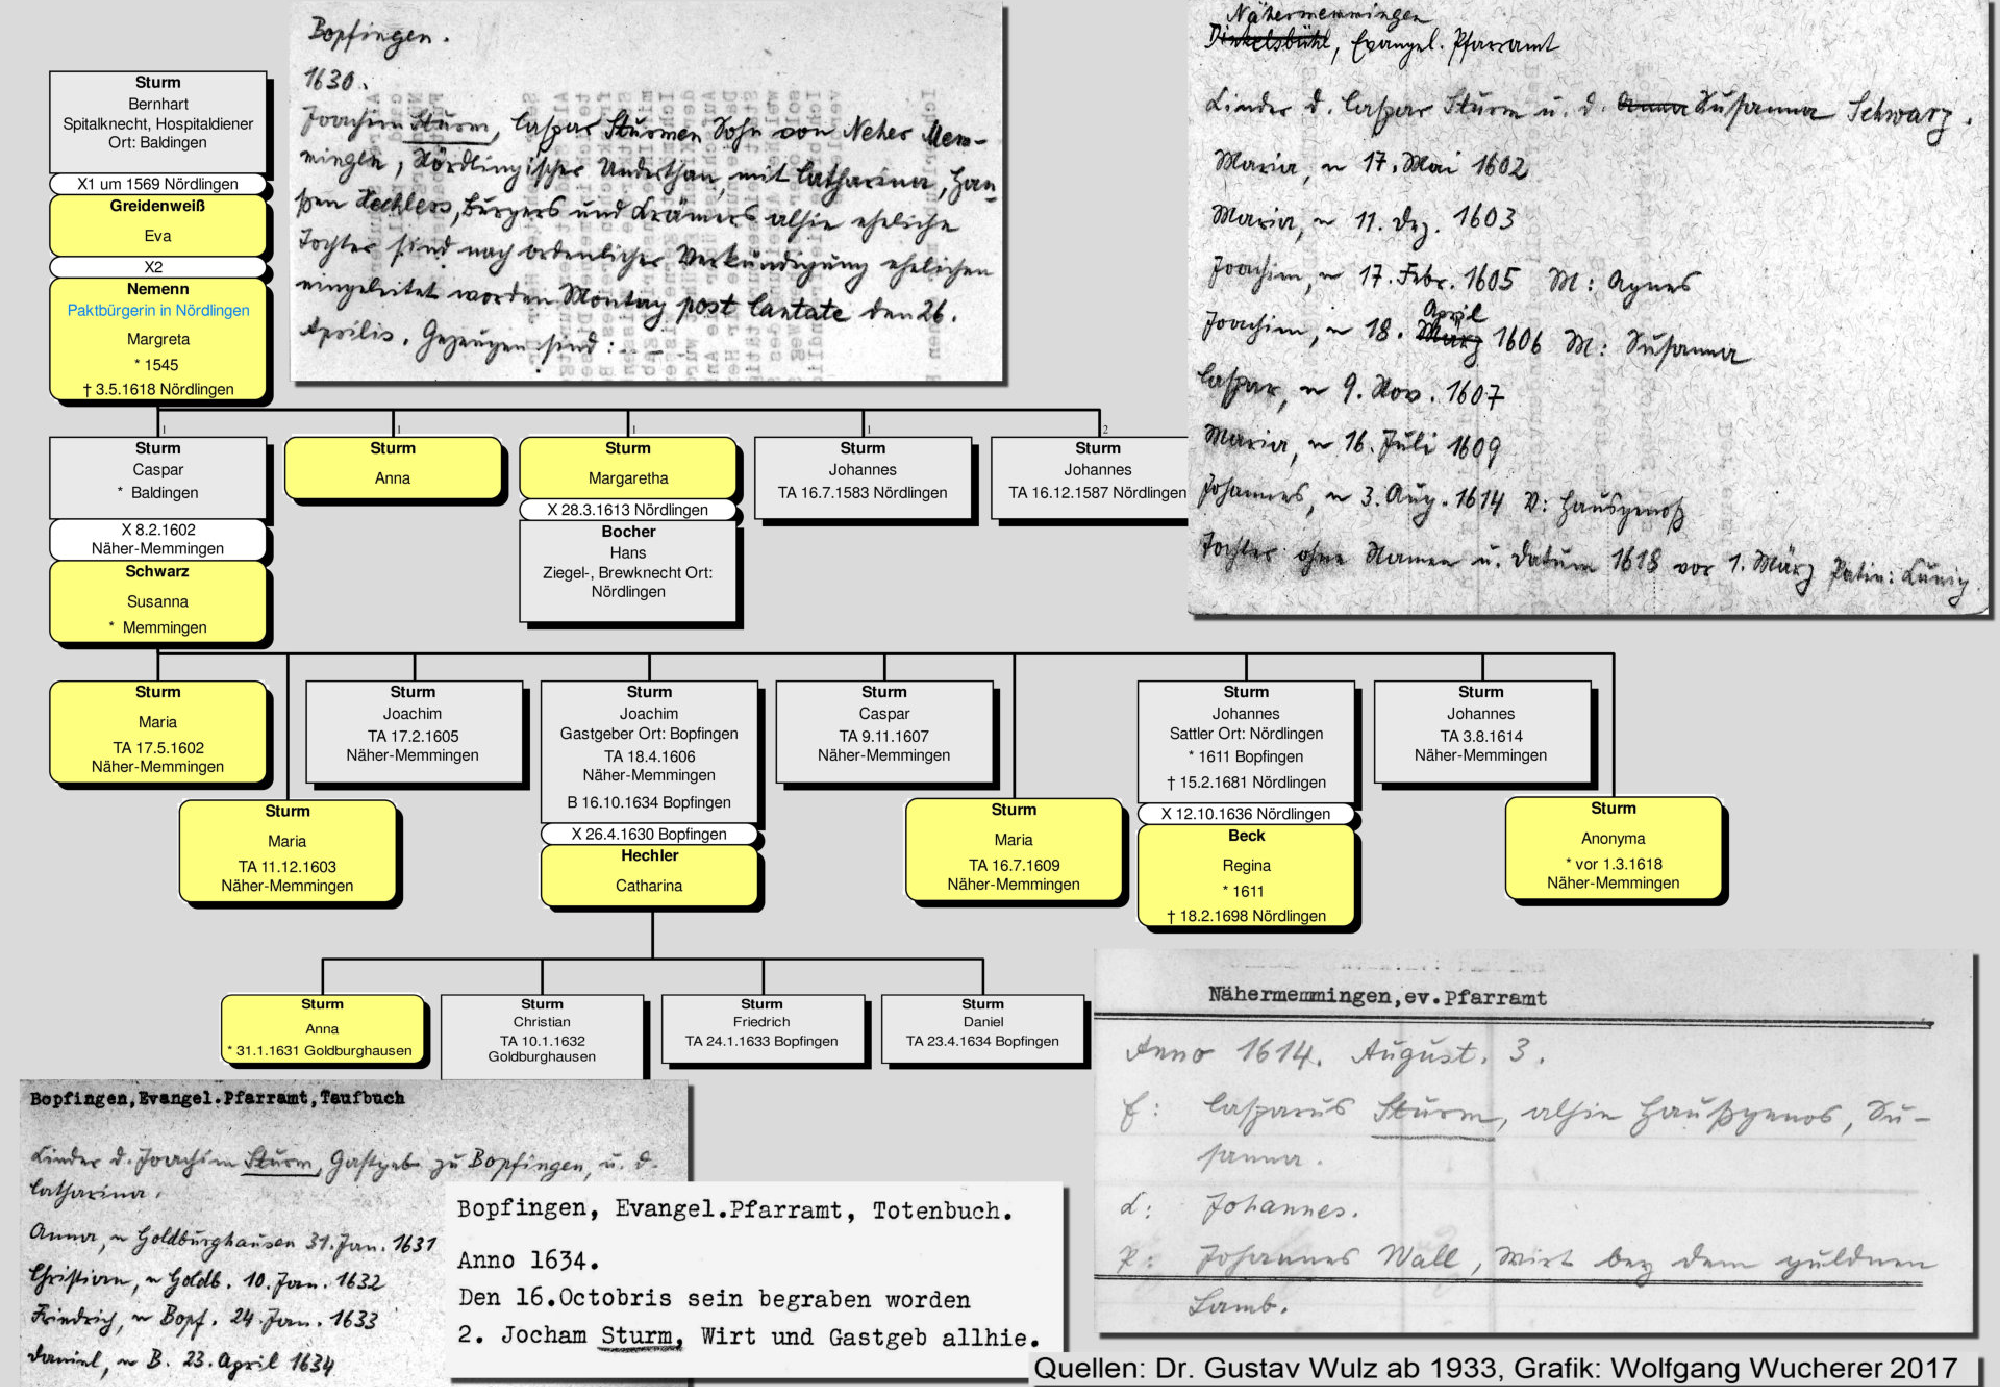 Sturm
Bernhart
Spitalknecht, Hospitaldiener
Ort: Baldingen
X1 um 1569 Nördlingen
Greidenweiß
Eva
X2
Nemenn
Paktbürgerin in Nördlingen
Margreta
* 1545
† 3.5.1618 Nördlingen
Bopfingen.
1630.
Joachim Sturm, Caspar Sturmen Sohn von Neher Mem-
mingen, Nördlingischer Underthan, mit Catharina, Han-
ßen Hechlers, Burgers und Krämers alhie eheliche
Tochter sind nach ordenlicher Verkündigung ehelichen
eingeleitet worden Montag post Cantate den 26.
Aprilis. Gezeugen sind: . – –
Nähermemmingen
Dinkelsbühl, Evangel. Pfarramt
Kinder d. Caspar Sturm u. d. Anna Susanna Schwarz.
Maria, ~ 17. Mai 1602
Maria, ~ 11. Dez. 1603
Joachim, ~ 17. Febr. 1605 M: Agnes
April
Joachim, ~ 18. März 1606 M: Susanna
Caspar, ~ 9. Nov. 1607
Maria, ~ 16. Juli 1609
Johannes, ~ 3. Aug. 1614 V: Hausgenoß
Tochter ohne Namen u. Datum 1618 vor 1. März Patin: Künig.
1
1
1
1
2
Sturm
Caspar
* Baldingen
X 8.2.1602
Näher-Memmingen
Schwarz
Susanna
* Memmingen
Sturm
Anna
Sturm
Margaretha
X 28.3.1613 Nördlingen
Bocher
Hans
Ziegel-, Brewknecht Ort:
Nördlingen
Sturm
Johannes
TA 16.7.1583 Nördlingen
Sturm
Johannes
TA 16.12.1587 Nördlingen
Sturm
Maria
TA 17.5.1602
Näher-Memmingen
Sturm
Maria
TA 11.12.1603
Näher-Memmingen
Sturm
Joachim
TA 17.2.1605
Näher-Memmingen
Sturm
Joachim
Gastgeber Ort: Bopfingen
TA 18.4.1606
Näher-Memmingen
B 16.10.1634 Bopfingen
X 26.4.1630 Bopfingen
Hechler
Catharina
Sturm
Caspar
TA 9.11.1607
Näher-Memmingen
Sturm
Maria
TA 16.7.1609
Näher-Memmingen
Sturm
Johannes
Sattler Ort: Nördlingen
* 1611 Bopfingen
† 15.2.1681 Nördlingen
X 12.10.1636 Nördlingen
Beck
Regina
* 1611
† 18.2.1698 Nördlingen
Sturm
Johannes
TA 3.8.1614
Näher-Memmingen
Sturm
Anonyma
* vor 1.3.1618
Näher-Memmingen
Sturm
Anna
* 31.1.1631 Goldburghausen
Sturm
Christian
TA 10.1.1632
Goldburghausen
Sturm
Friedrich
TA 24.1.1633 Bopfingen
Sturm
Daniel
TA 23.4.1634 Bopfingen
Bopfingen, Evangel.Pfarramt, Taufbuch
Kinder d. Joachim Sturm, Gastgeb zu Bopfingen, u. d.
Catharina.
Anna, ~ Goldburghausen 31. Jan. 1631
Christian, ~ Goldb. 10. Jan. 1632
Friedrich, ~ Bopf. 24. Jan. 1633
Daniel, ~ B. 23. April 1634
Bopfingen, Evangel.Pfarramt, Totenbuch.
Anno 1634.
Den 16.Octobris sein begraben worden
2. Jocham Sturm, Wirt und Gastgeb allhie.
Nähermemmingen,ev.Pfarramt
Anno 1614. August. 3.
E: Casparus Sturm, alhie Haußgenos, Su-
sanna.
K: Johannes.
P: Johannes Wall, Wirt bey dem guldnen
Lamb.
Quellen: Dr. Gustav Wulz ab 1933, Grafik: Wolfgang Wucherer 2017